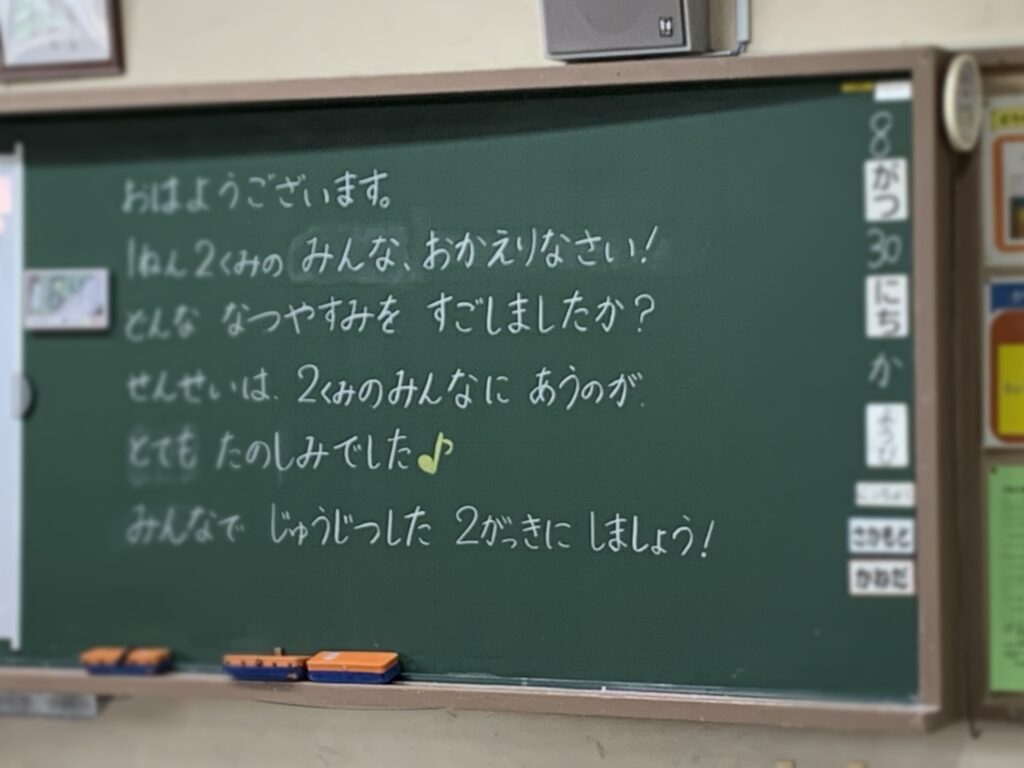 おはようございます。
1ねん2くみの みんな、おかえりなさい!
どんな なつやすみを すごしましたか?
せんせいは、2くみのみんなに あうのが、
とても たのしみでした♪
みんなで じゅうじつした 2がっきに しましょう!
8
がつ
30
にち
か
ようび
さかもと
かねだ